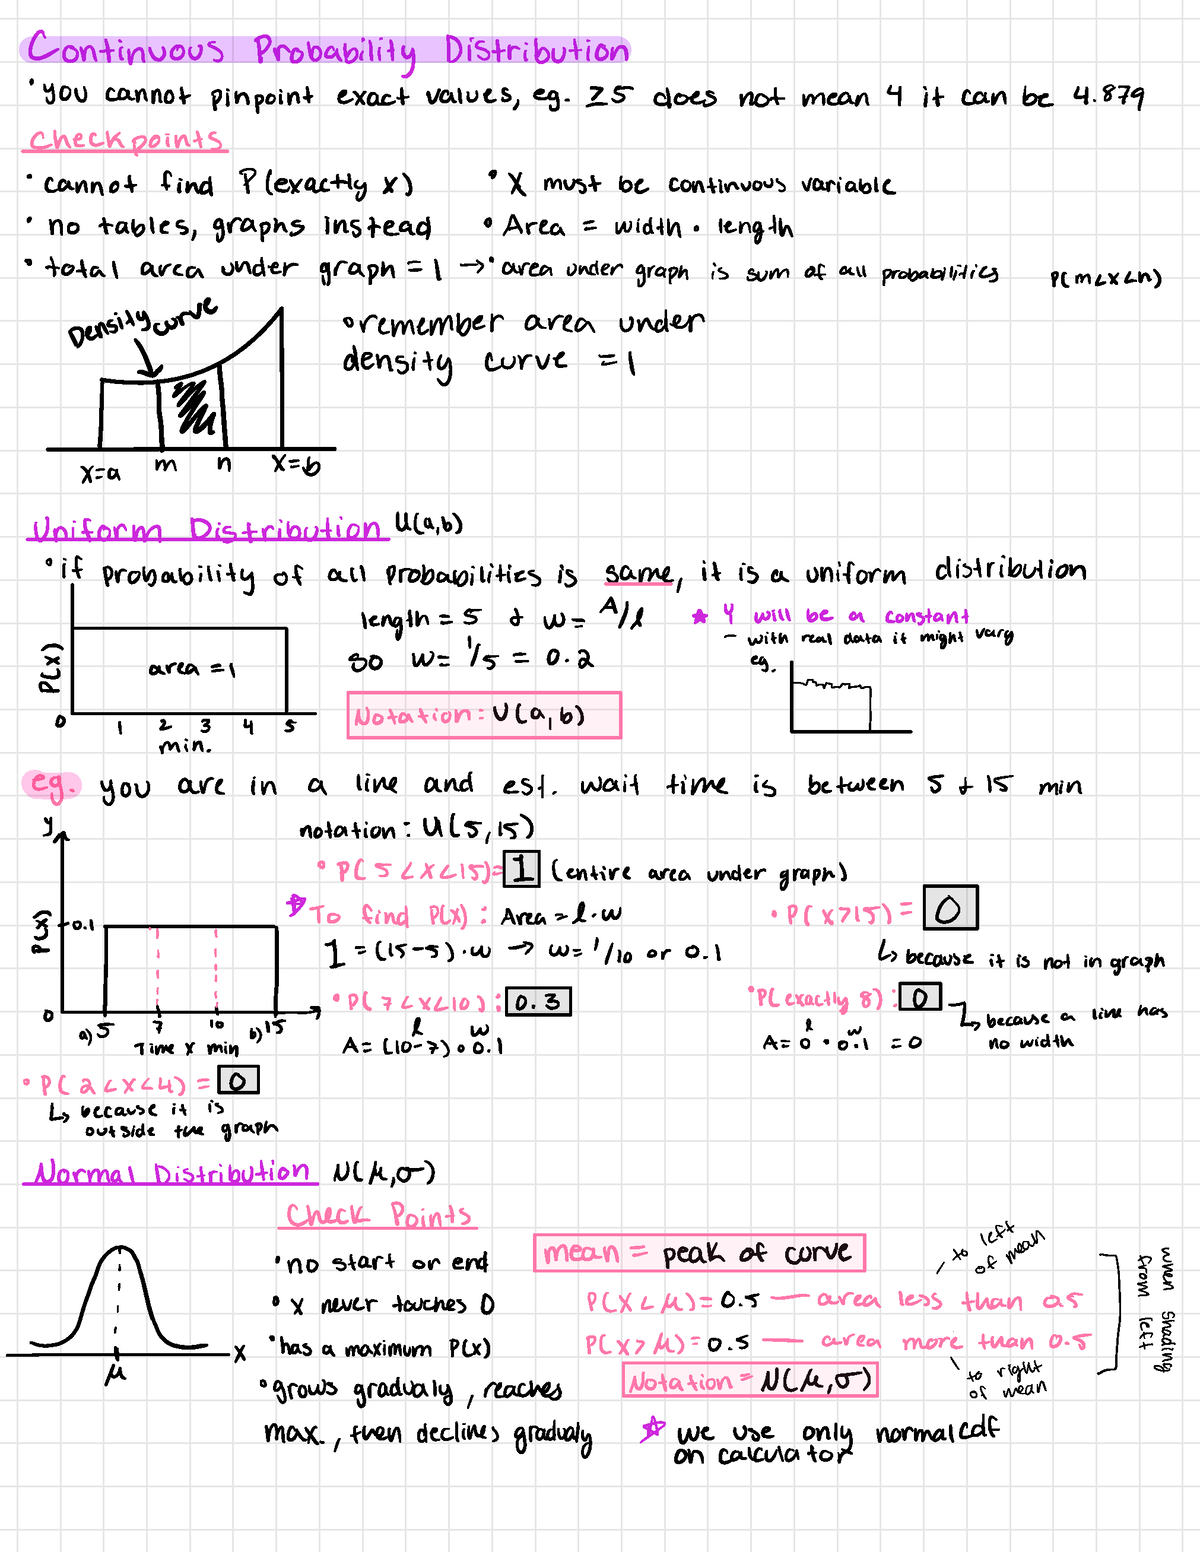 Continuous Probability Distribution
• you cannot pinpoint exact values, eg. Z5 does not mean 4 it can be 4.879
Checkpoints
• cannot find P(exactly x)
• X must be continuous variable
• no tables, graphs instead
• Area = width • length
• total area under graph = 1 → • area under graph is sum of all probabilities P(m<x<n)
Density curve
• remember area under
density curve = 1
X=a m n X=b
Uniform Distribution U(a,b)
• if probability of all probabilities is same, it is a uniform distribution
P(x)
area = 1
0 1 2 3 4 5
min.
length = 5 & w = A/l
so w = 1/5 = 0.2
Notation: U(a,b)
★ Y will be a constant
- with real data it might vary
eg.
eg. you are in a line and est. wait time is between 5 & 15 min
y
P(x)
0.1
0
a) 5 7 10 b) 15
Time x min
notation: U(5,15)
• P(5<x<15)= 1 (entire area under graph)
★ To find P(x): Area = l.w
1 = (15-5).w → w= 1/10 or 0.1
• P(x>15) = 0
↳ because it is not in graph
• P(7<x<10): 0.3
l w
A= (10-7) • 0.1
• P(exactly 8): 0
↳ because a line has
no width
l w
A= 0 • 0.1 = 0
• P(2<x<4) = 0
↳ because it is
outside the graph
Normal Distribution N(μ,σ)
Check Points
• no start or end
• x never touches 0
• has a maximum P(x)
• grows gradualy, reaches
max., then declines gradualy
x
μ
mean = peak of curve
- to left
of mean
P(X<μ)= 0.5 — area less than 0.5
P(X>μ)= 0.5 — area more than 0.5
to right
of mean
when shading
from left
Notation = N(μ,σ)
★ we use only normalcdf
on calculator